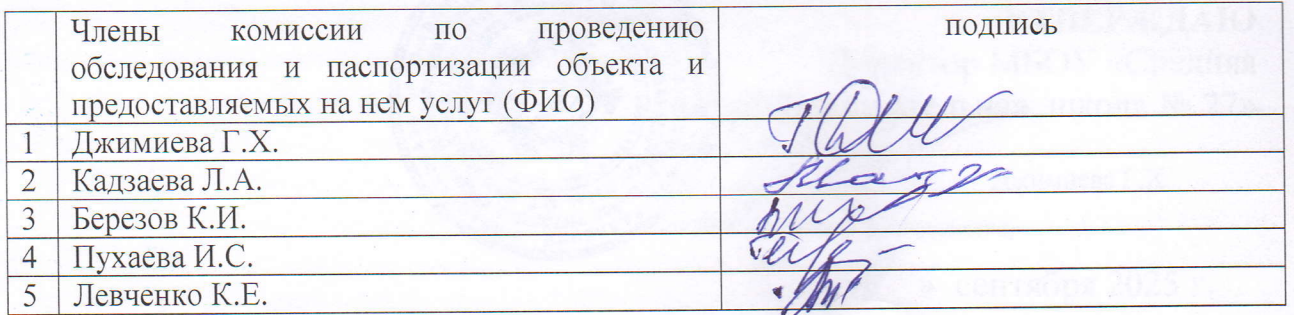 Члены комиссии по проведению подпись
обследования и паспортизации объекта и
предоставляемых на нем услуг (ФИО)
1 Джимиева Г.Х.
2 Кадзаева Л.А.
3 Березов К.И.
4 Пухаева И.С.
5 Левченко К.Е.